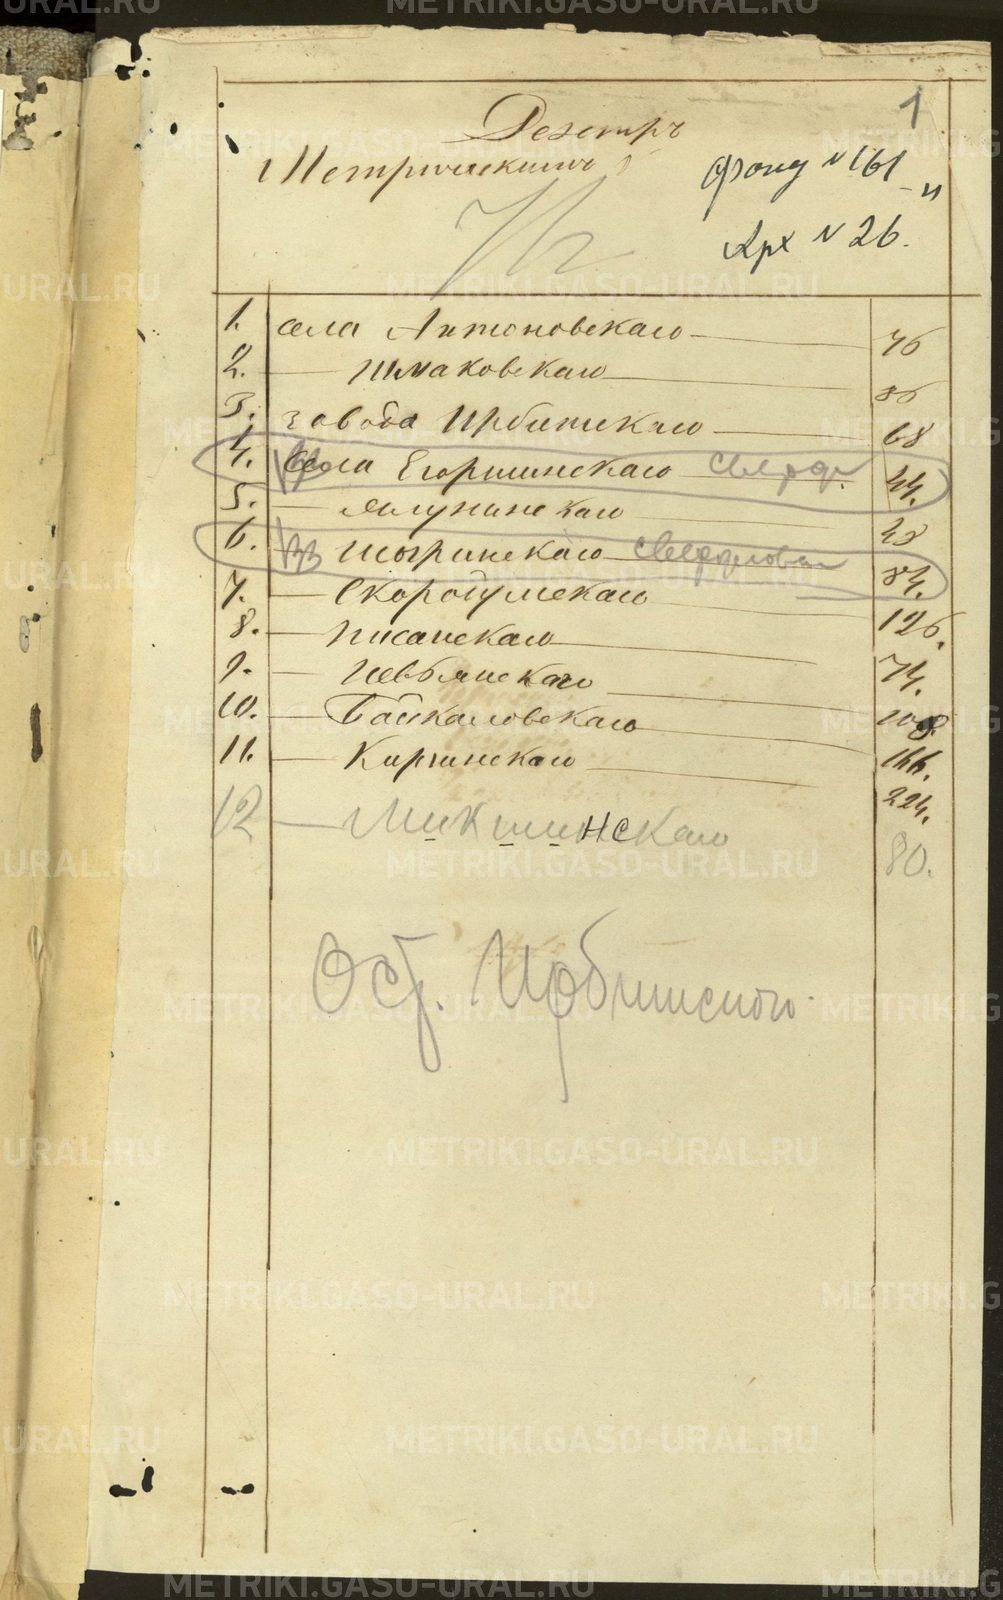 1
Реэстръ
Метрическимъ
Фонд № 161-и
Арх № 26.
1. села Антоновскаго 46
2. — Шмаковскаго 86
3. завода Ирбитскаго 68
4. села Егоршинскаго Сверд. 44.
5. — Ялунинскаго 48
6. Шогринскаго Свердловск 84.
7. — Скородумскаго 126.
8. — Писанскаго 74.
9. — Невьянскаго 108.
10. — Байкаловскаго 166.
11. — Киргинскаго 224.
12 — Микшинскаго 80.
METRIKI.GASO-URAL.RU